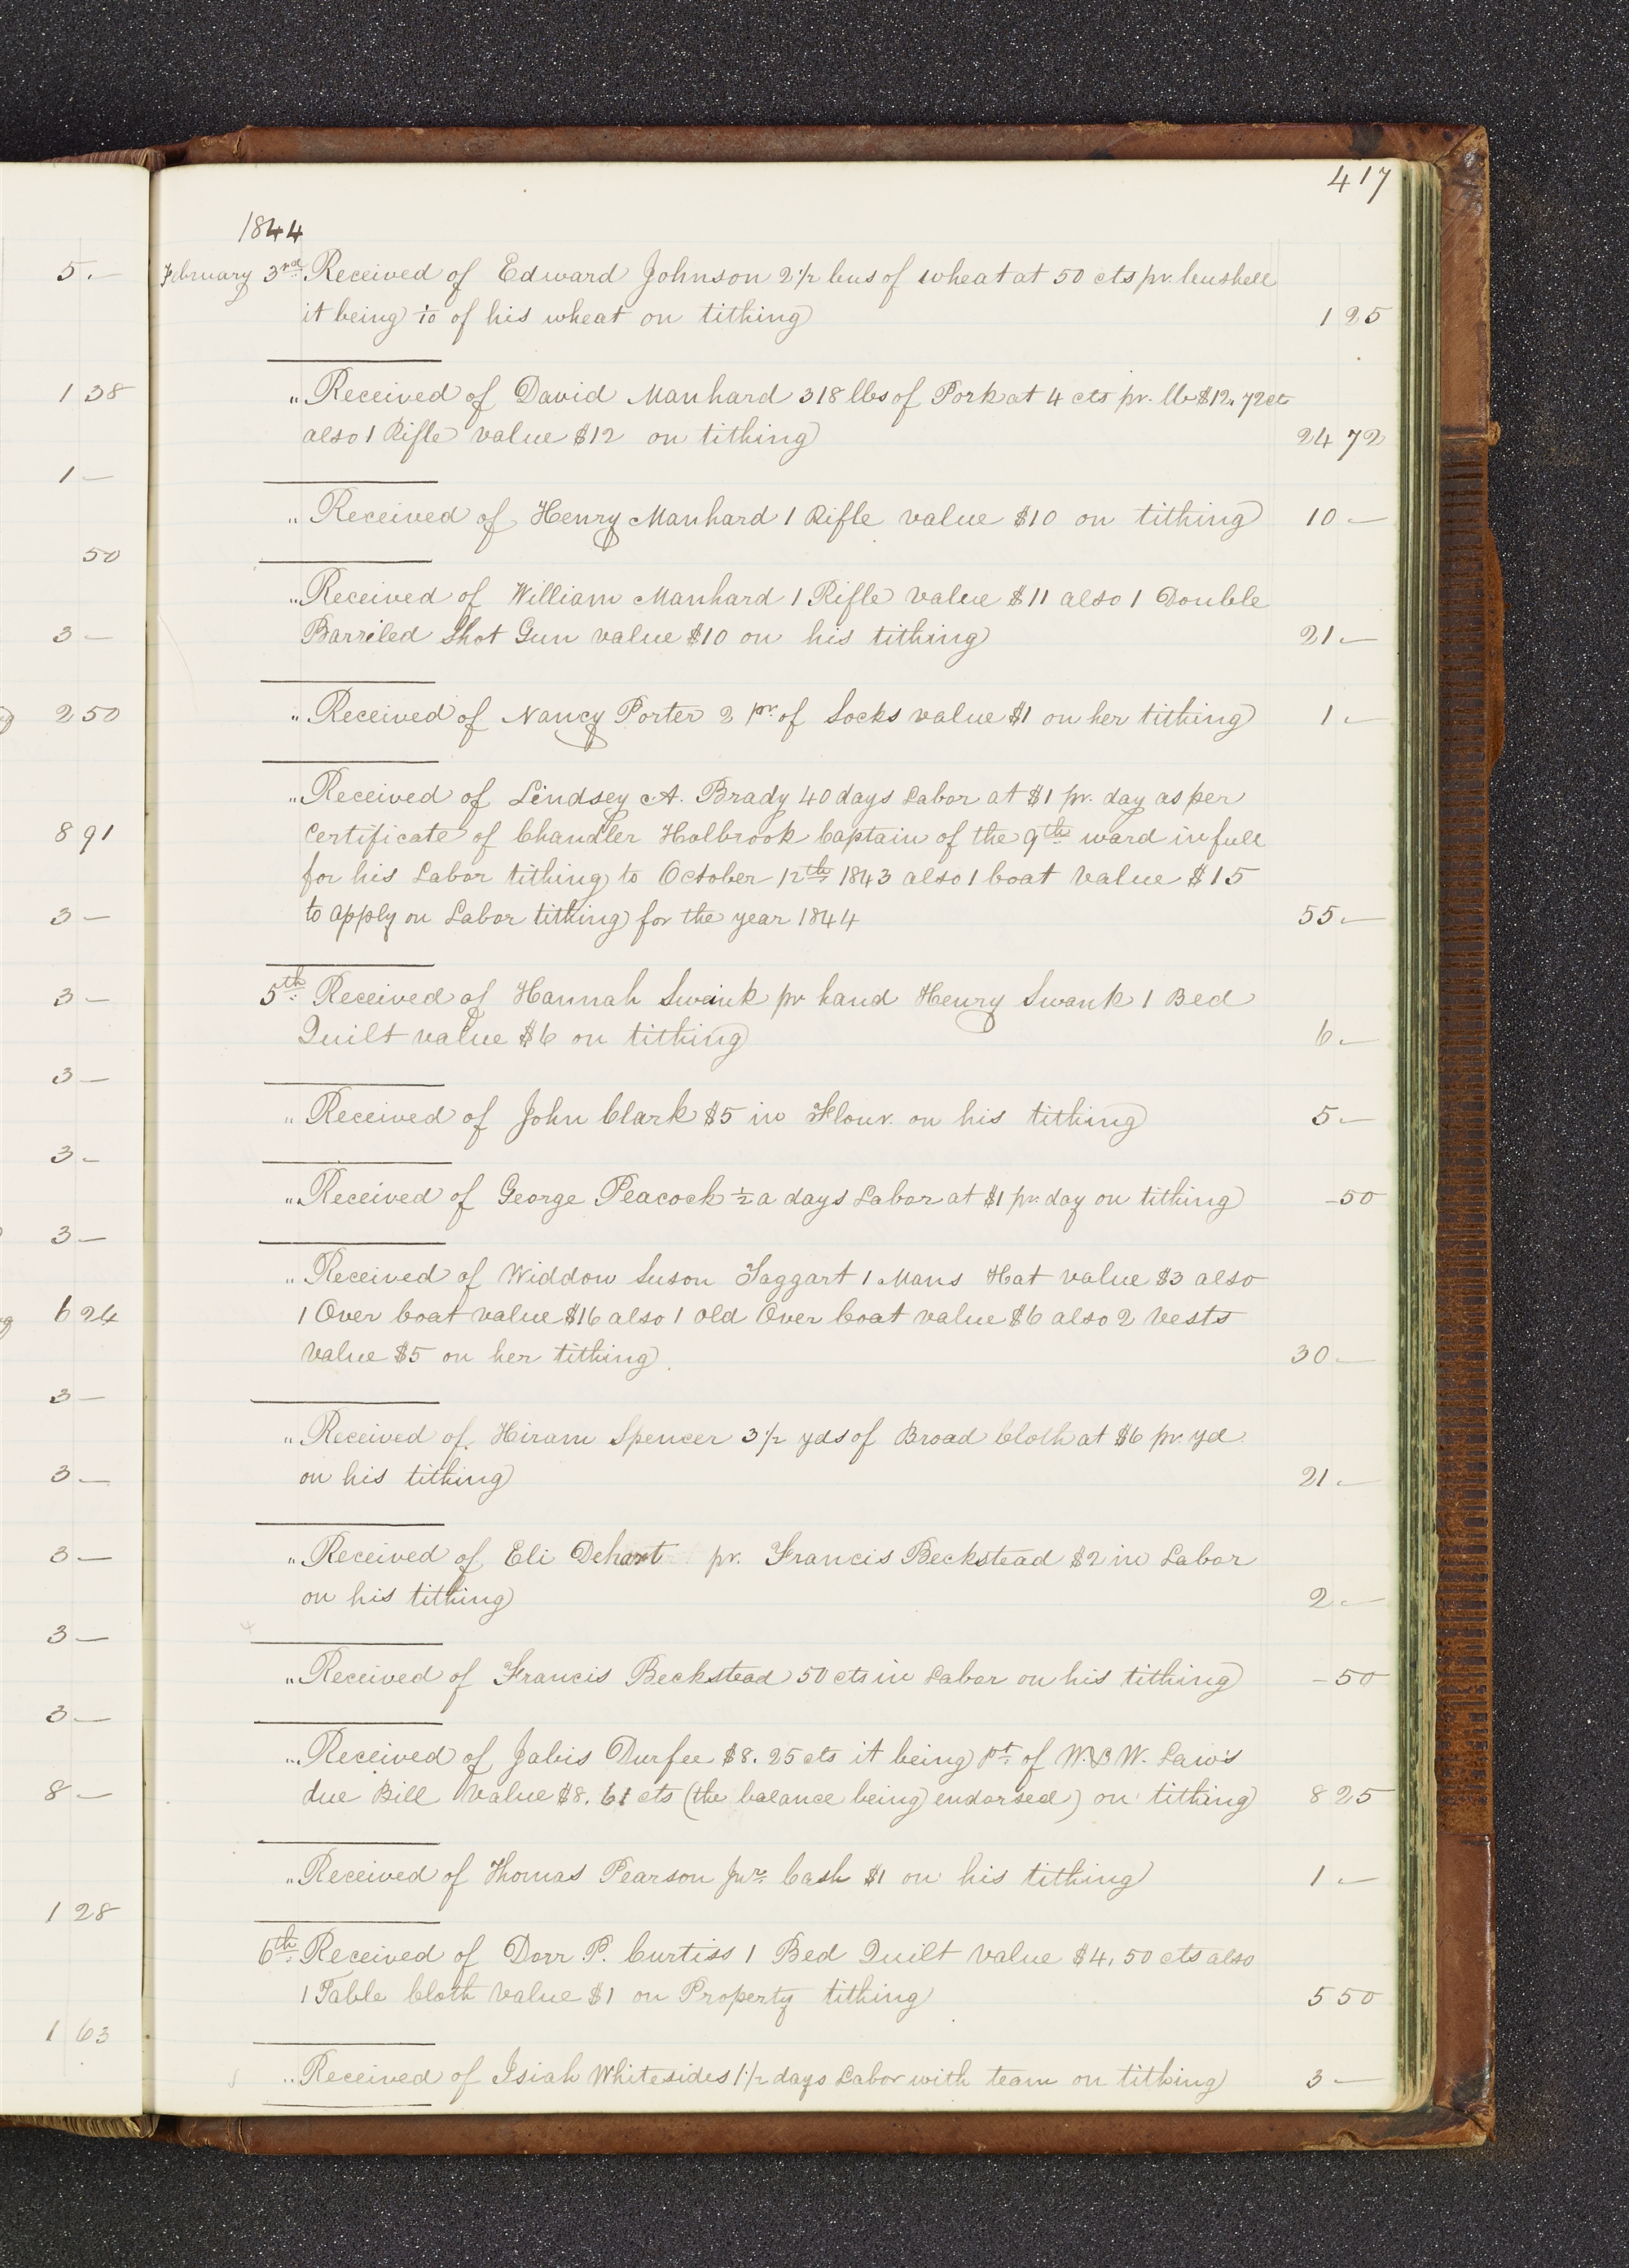 417
1844
5.—
February 3rd. Received of Edward Johnson 2 1/2 bus of wheat at 50 cts pr. bushell
it being 1/10 of his wheat on tithing 1 25
1 38
" Received of David Manhard 318 lbs of Pork at 4 cts pr. lb $12.72ct
also 1 Rifle value $12 on tithing 24 72
1 —
" Received of Henry Manhard 1 Rifle value $10 on tithing 10 —
50
" Received of William Manhard 1 Rifle value $11 also 1 Double
3 —
Barriled Shot Gun value $10 on his tithing 21.—
250
" Received of Nancy Porter 2 pr. of Socks value $1 on her tithing 1.—
" Received of Lindsey A. Brady 40 days Labor at $1 pr. day as per
8 91
Certificate of Chandler Holbrook Captain of the 9th ward in full
for his Labor tithing to October 12th 1843 also 1 Coat value $15
3 —
to apply on Labor tithing for the year 1844 55.—
3 —
5th. Received of Hannah Swank pr hand Henry Swank 1 Bed
Quilt value $6 on tithing 6.—
3 —
" Received of John Clark $5 in Flour. on his tithing 5.—
3 -
" Received of George Peacock 1/2 a days Labor at $1 pr. day on tithing -50
3 —
" Received of Widdow Suson Taggart 1 Mans Hat value $3 also
6 24
1 Over Coat value $16 also 1 old Over Coat value $6 also 2 vests
value $5 on her tithing. 30.—
3 —
" Received of Hiram Spencer 3 1/2 yds of Broad Cloth at $6 pr. yd.
3 —
on his tithing 21.—
3 —
" Received of Eli Dehart pr. Francis Beckstead $2 in Labor
on his tithing 2.—
3 —
" Received of Francis Beckstead 50 cts in Labor on his tithing -50
3 —
" Received of Jabis Durfee $8.25 cts it being pt. of W. & W. Law's
8 —
due Bill value $8.61 cts (the balance being endorsed) on tithing 8 25
" Received of Thomas Pearson Jnr. Cash $1 on his tithing 1.—
1 28
6th. Received of Dorr P. Curtiss 1 Bed Quilt value $4,50 cts also
1 Table Cloth value $1 on Property tithing 5 50
1 63
" Received of Isiah Whitesides 1 1/2 days Labor with team on tithing 3 —